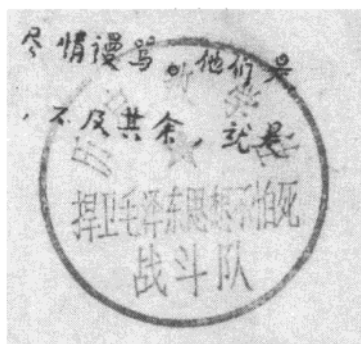 尽情谩骂。他们是
，不及其余，就是
捍卫毛泽东思想不怕死
战斗队